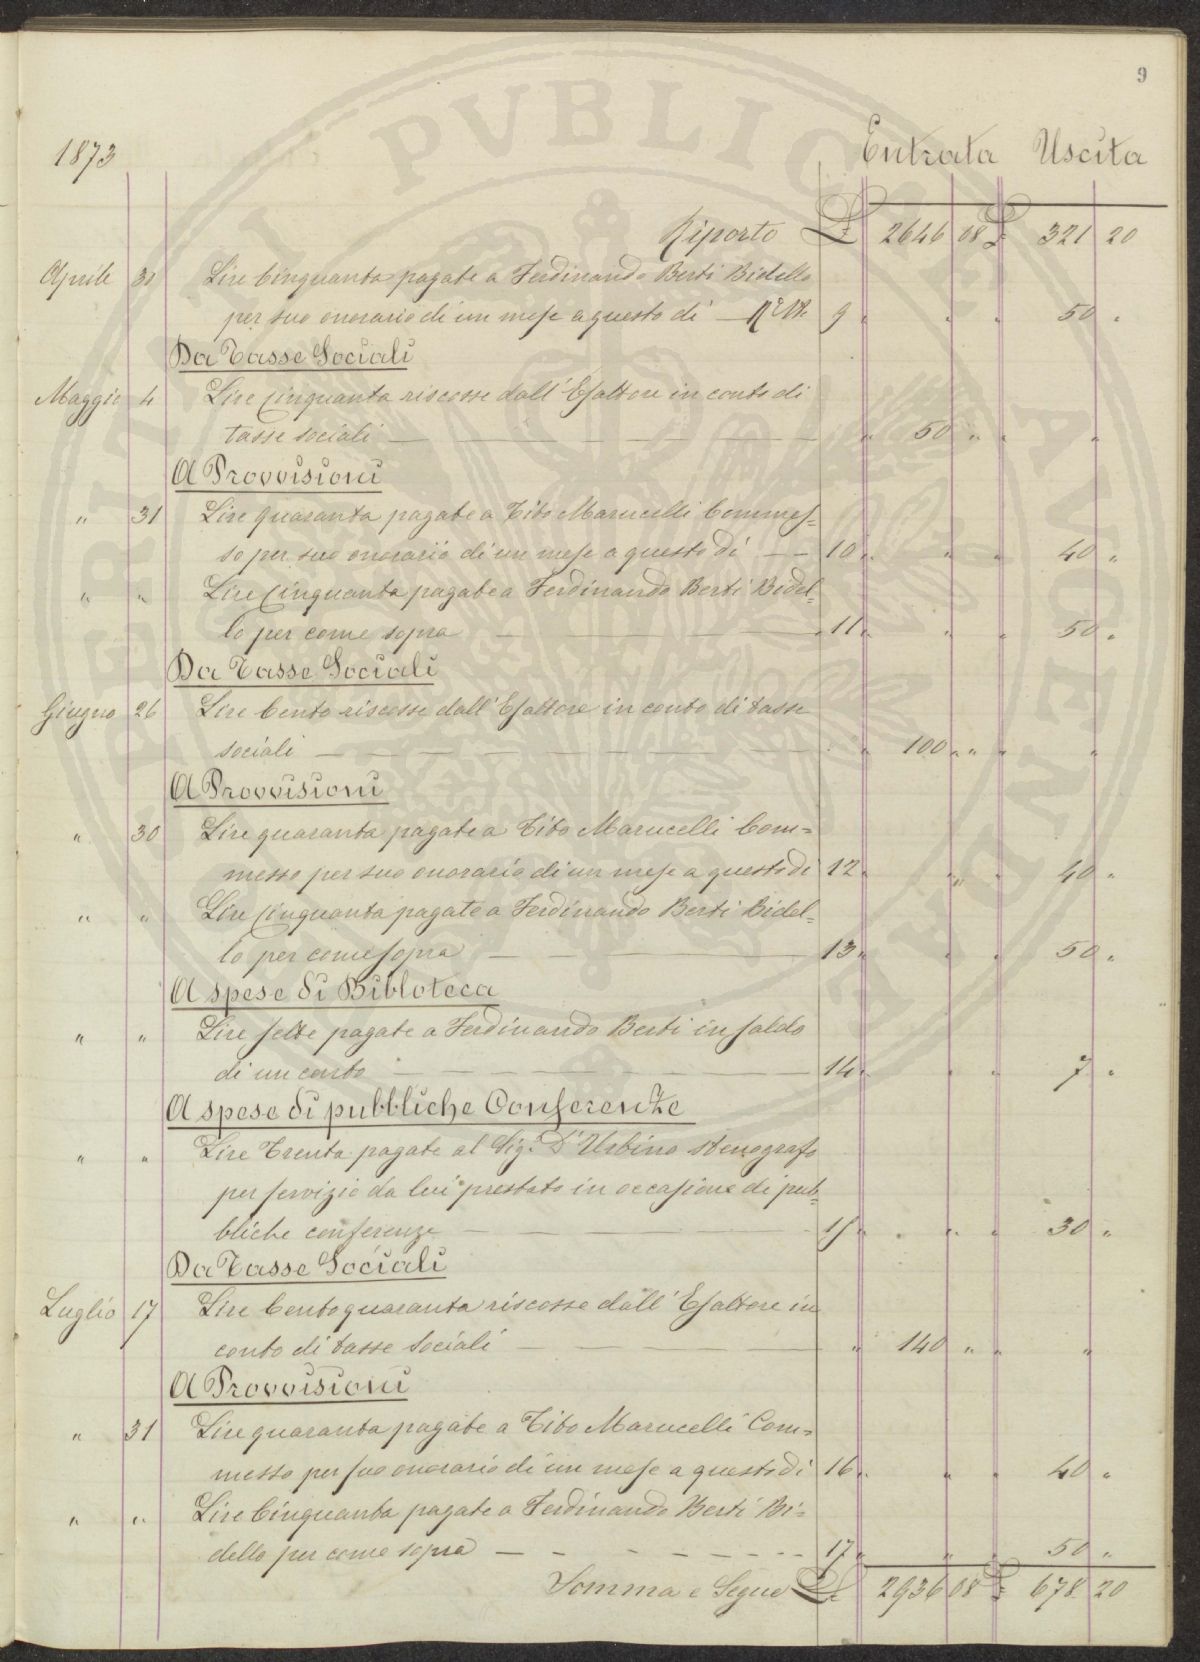 9
1873 Entrata Uscita
Riporto £ 2646 08 £ 321 20
Aprile 31 Lire Cinquanta pagate a Ferdinando Berti Bidello
per suo onorario di un mese a questo dì — 9 " " " 50 "
Da Tasse Sociali
Maggio 4 Lire Cinquanta riscosse dall'Esattore in conto di
tasse sociali — " 50 " " "
A Provvisioni
" 31 Lire quaranta pagate a Tito Marucelli Commes=
so per suo onorario di un mese a questo dì — 10 " " " 40 "
" " Lire Cinquanta pagate a Ferdinando Berti Bidel=
lo per come sopra — 11 " " " 50 "
Da Tasse Sociali
Giugno 26 Lire Cento riscosse dall'Esattore in conto di tasse
sociali — " 100 " " " "
A Provvisioni
" 30 Lire quaranta pagate a Tito Marucelli Com=
messo per suo onorario di un mese a questo dì 12 " " " 40 "
" " Lire Cinquanta pagate a Ferdinando Berti Bidel=
lo per come sopra — 13 " " " 50 "
A spese di Bibloteca
" " Lire sette pagate a Ferdinando Berti in saldo
di un conto — 14 " " " 7 "
A spese di pubbliche Conferenze
" " Lire Trenta pagate al Sig: D'Urbino stenografo
per servizio da lui prestato in occasione di pub=
bliche conferenze — 15 " " " 30 "
Da Tasse Sociali
Luglio 17 Lire Cento quaranta riscosse dall'Esattore in
conto di tasse Sociali — " 140 " " "
A Provvisioni
" 31 Lire quaranta pagate a Tito Marucelli Com=
messo per suo onorario di un mese a questo dì 16 " " " 40 "
" " Lire Cinquanta pagate a Ferdinando Berti Bi=
dello per come sopra — 17 " " " 50 "
Somma e Segue £ 2936 08 £ 678 20